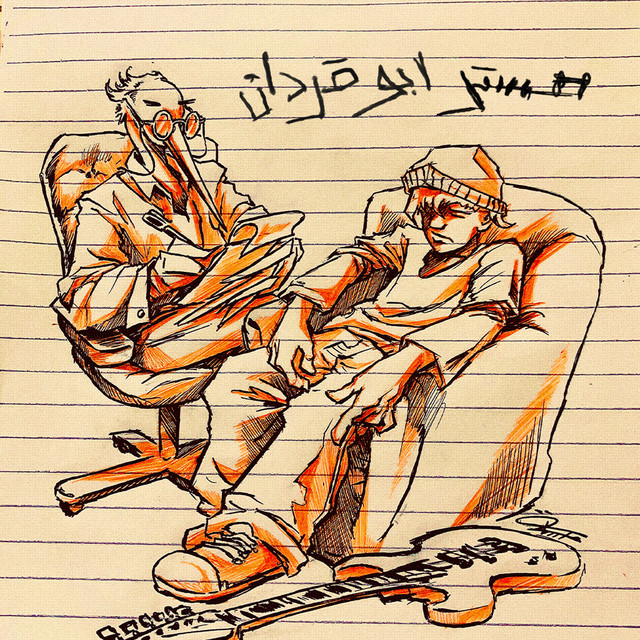 مستر ابو قردان